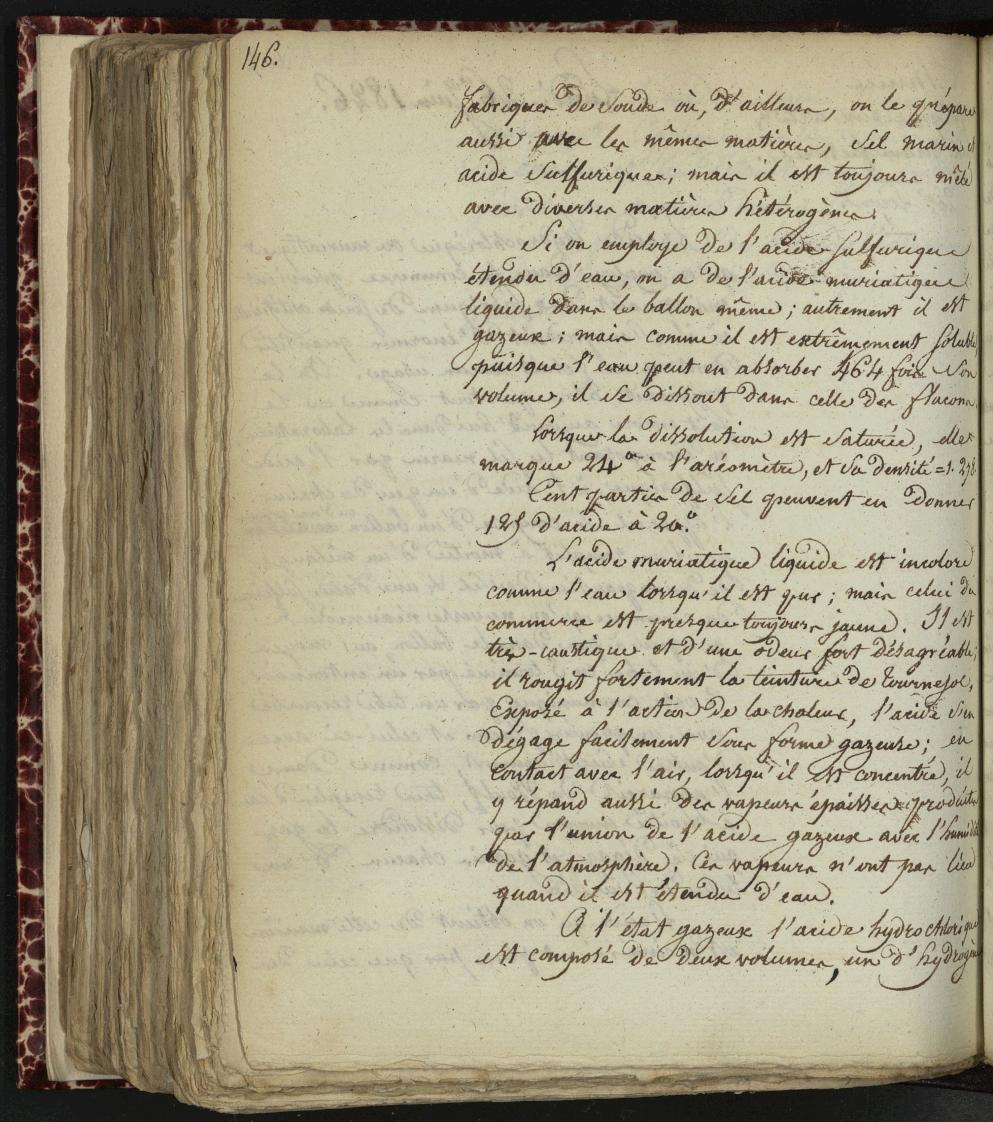 146.
fabriques de soude où, d'ailleurs, on le prépare
aussi avec les mêmes matières, sel marin et
acide sulfurique; mais il est toujours mêlé
avec diverses matières hétérogènes.
Si on employe de l'acide sulfurique
étendu d'eau, on a de l'acide muriatique
liquide dans le ballon même; autrement il est
gazeux; mais comme il est extrêmement soluble,
puisque l'eau peut en absorber 464 fois son
volume, il se dissout dans celle des flacons.
Lorsque la dissolution est saturée, elle
marque 24° à l'aréomètre, et sa densité =1.
Cent parties de sel peuvent en donner
125 d'acide à 20°.
L'acide muriatique liquide est incolore
comme l'eau lorsqu'il est pur; mais celui du
commerce est presque toujours jaune. Il est
très-caustique et d'une odeur fort désagréable;
il rougit fortement la teinture de tournesol.
Exposé à l'action de la chaleur, l'acide s'en
dégage facilement sous forme gazeuse; en
contact avec l'air, lorsqu'il est concentré, il
y répand aussi des vapeurs épaisses produites
par l'union de l'acide gazeux avec l'humidité
de l'atmosphère. Ces vapeurs n'ont pas lieu
quand il est étendu d'eau.
A l'état gazeux l'acide hydrochlorique
est composé de deux volumes, un d'hydrogène